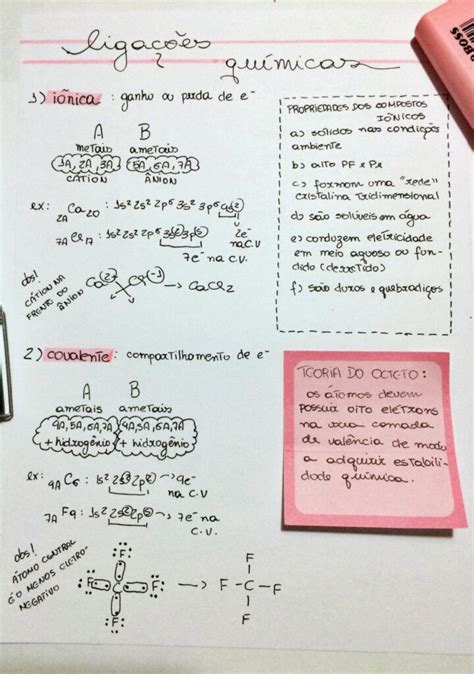 ligações
químicas
BOSS
1) iônica : ganho ou perda de e⁻
A B
metais ametais
1A, 2A, 3A 5A, 6A, 7A
CÁTION ÂNION
ex: 2A Ca20 : 1s² 2s² 2p⁶ 3s² 3p⁶ 4s² 2e⁻ na C.V
7A Cl17 : 1s² 2s² 2p⁶ 3s² 3p⁵ 7e⁻ na C.V.
obs!
CÁTION NA
FRENTE DO
ÂNION
Ca+2 Cl-1 → CaCl2
PROPRIEDADES DOS COMPOSTOS
IÔNICOS
a) sólidos nas condição
ambiente
b) alto PF e Pe
c) formam uma "rede"
cristalina tridimensional
d) são solúveis em água
e) conduzem eletricidade
em meio aquoso ou fun-
dido (derretido)
f) são duros e quebradiços
2) covalente : compartilhamento de e⁻
A B
ametais ametais
4A, 5A, 6A, 7A 4A, 5A, 6A, 7A
+ hidrogênio + hidrogênio
ex: 4A C6 : 1s² 2s² 2p² → 4e⁻
na C.V
7A F9 : 1s² 2s² 2p⁵ → 7e⁻ na
C.V.
obs!
ÁTOMO CENTRAL
É O MENOS ELETRO-
NEGATIVO
F
F C F
F
→
F
F - C - F
F
TEORIA DO OCTETO :
os átomos devem
possuir oito elétrons
na sua camada
de valência de modo
a adquirir estabili-
dade química.